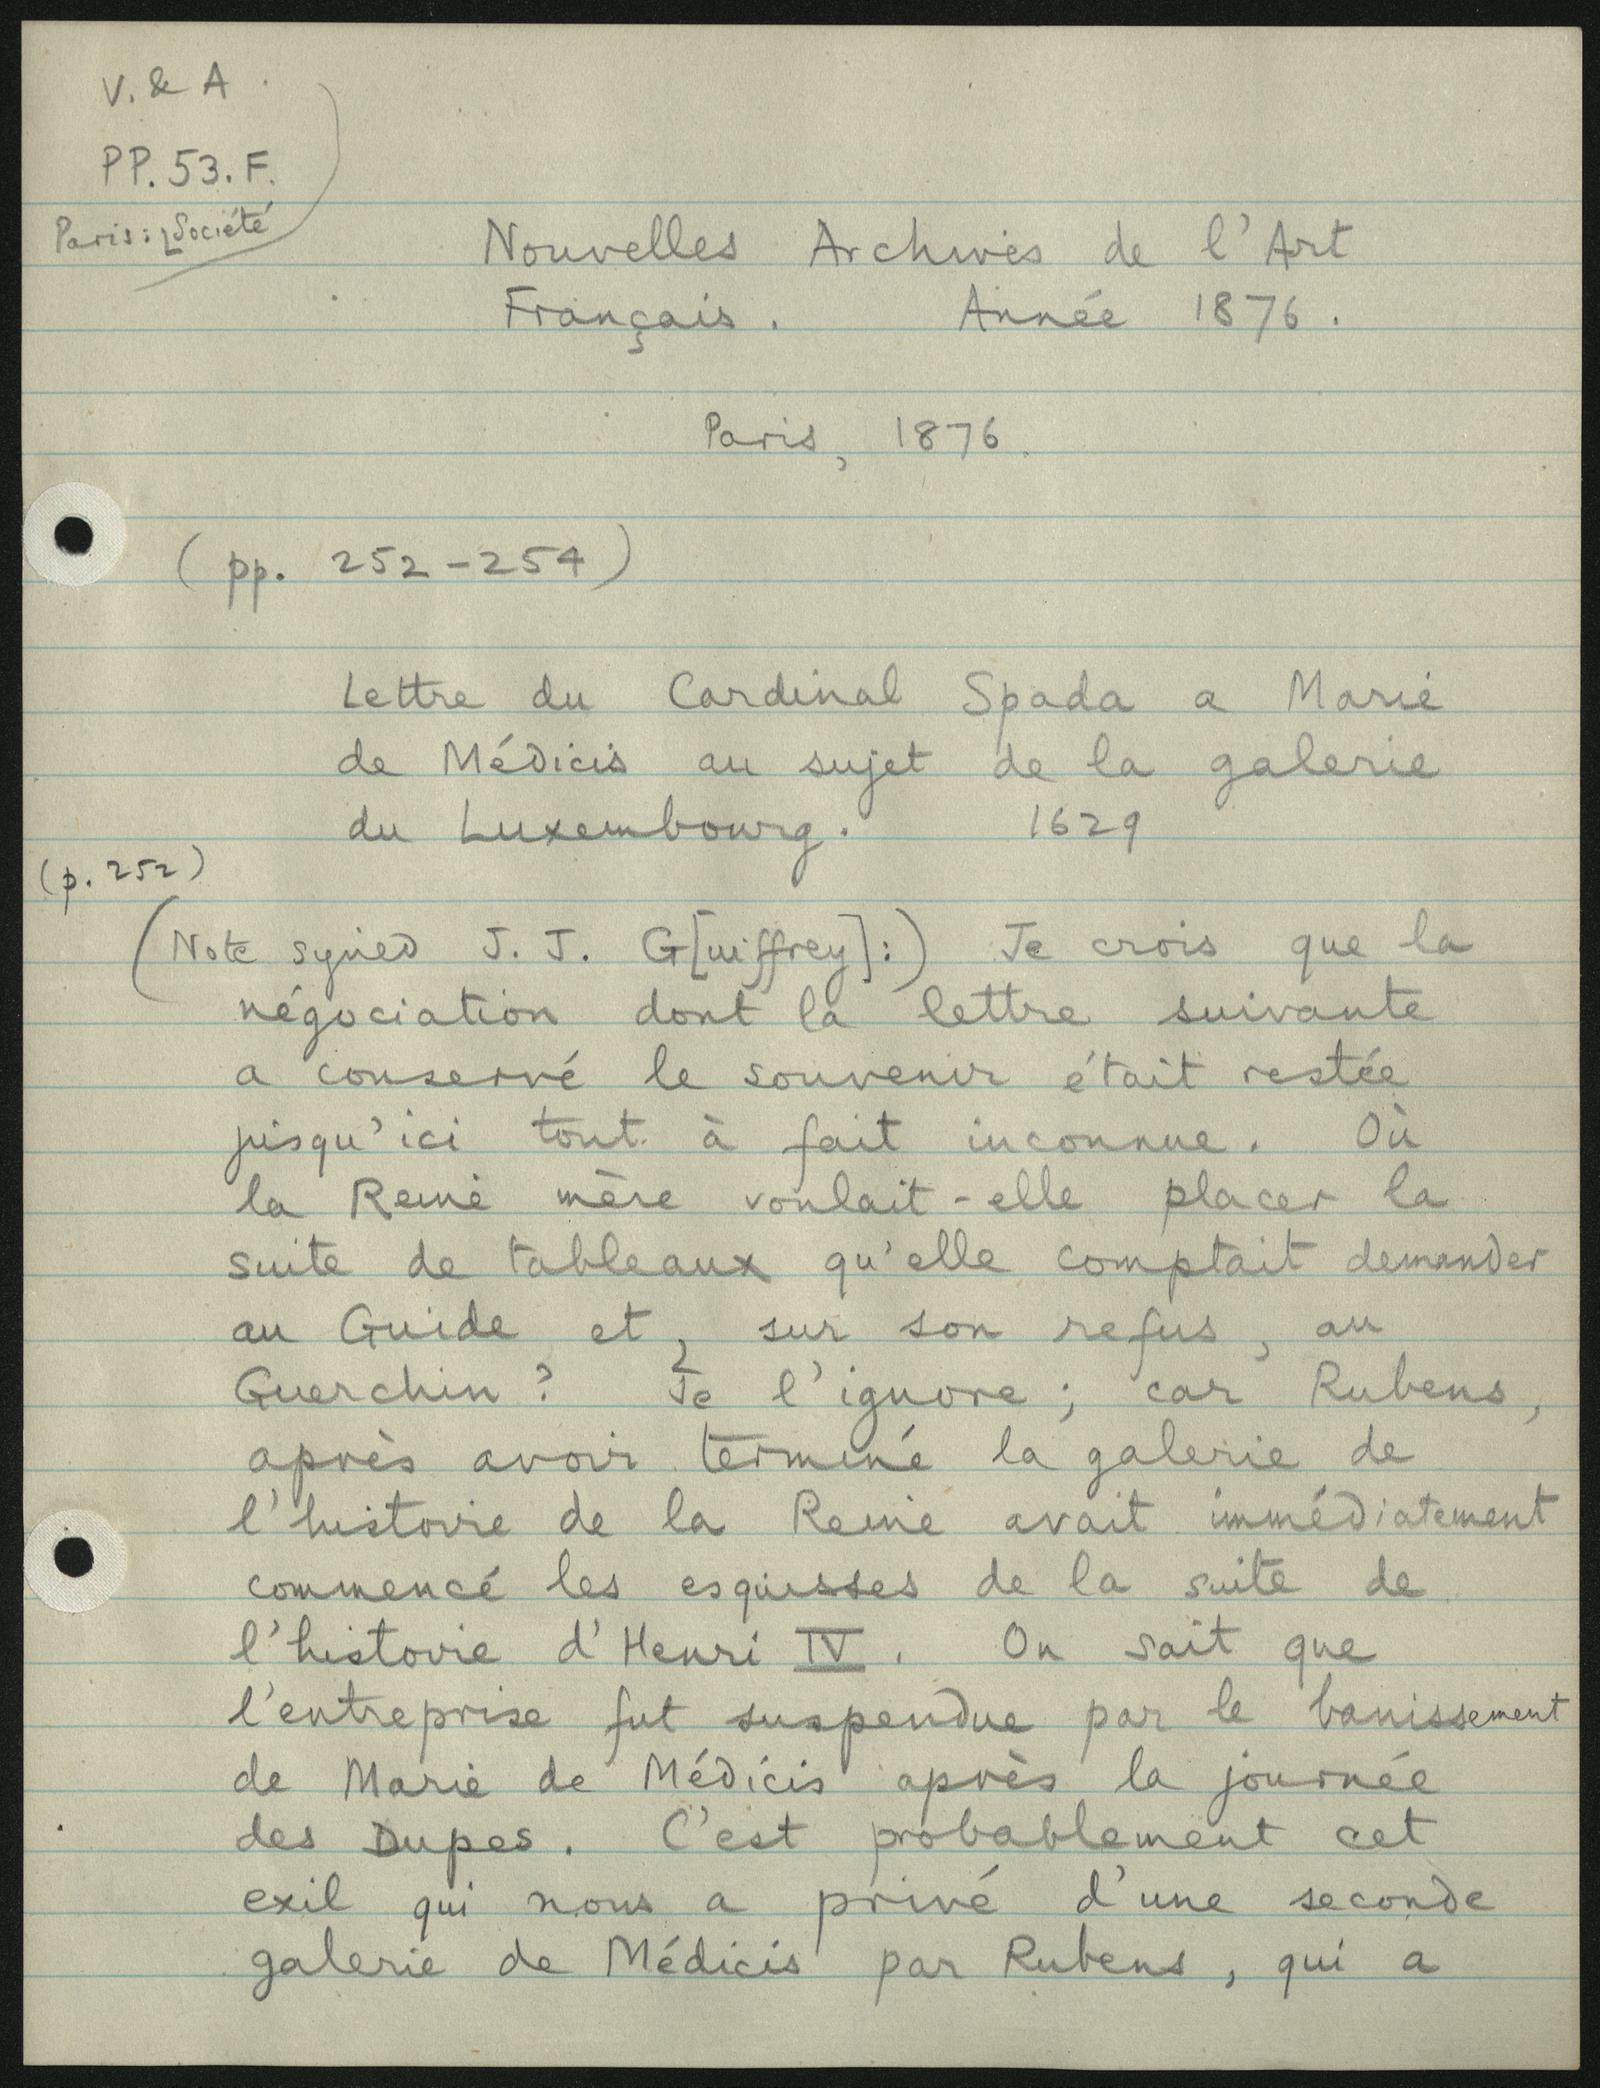 V. & A.
PP. 53. F.
Paris: Société
Nouvelles Archives de l'Art
Français. Année 1876.
Paris, 1876.
(pp. 252-254)
Lettre du Cardinal Spada a Marie
de Médicis au sujet de la galerie
du Luxembourg. 1629
(p. 252)
(Note signed J. J. G[uiffrey]:) Je crois que la
négociation dont la lettre suivante
a conservé le souvenir était restée
jusqu'ici tout à fait inconnue. Où
la Reine mère voulait-elle placer la
suite de tableaux qu'elle comptait demander
au Guide et, sur son refus, au
Guerchin? Je l'ignore; car Rubens,
après avoir terminé la galerie de
l'histoire de la Reine avait immédiatement
commencé les esquisses de la suite de
l'histoire d'Henri IV. On sait que
l'entreprise fut suspendue par le banissement
de Marie de Médicis après la journée
des Dupes. C'est probablement cet
exil qui nous a privé d'une seconde
galerie de Médicis par Rubens, qui a